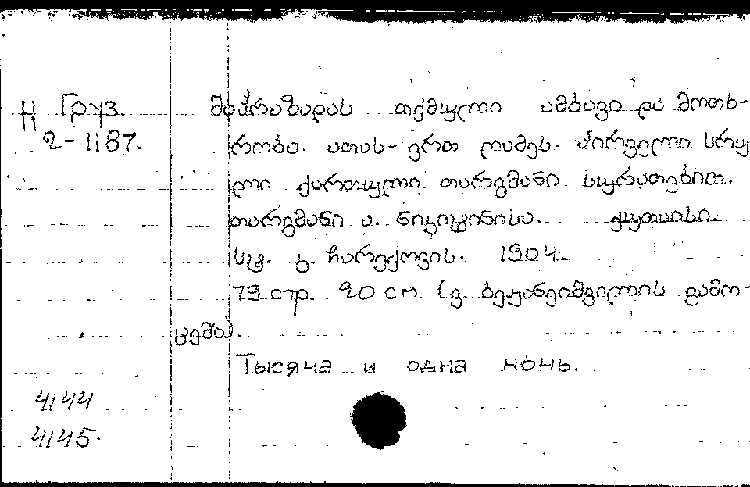 Н Груз. შაჰრაზადას თქმული ამბავი და მოთხ-
2-1187. რობა. ათას-ერთ ღამეს. პირველი სრუ-
ლი ქართული თარგმანი სურათებით.
თარგმანი ა. ნიკიტინისა. ქუთაისი.
სტ. კ. ჩარექოვის. 1904.
79 стр. 20 см. (გ. ბეჟანეიშვილის გამო-
ცემა).
Тысяча и одна ночь.
4144
4145.